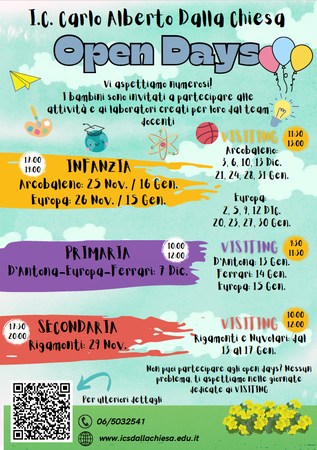 I.C. Carlo Alberto Dalla Chiesa
Open Days
Vi aspettiamo numerosi!
I bambini sono invitati a partecipare alle
attività e ai laboratori creati per loro dal team
docenti
17.00
19.00
INFANZIA
Arcobaleno: 25 Nov. / 16 Gen.
Europa: 26 Nov. / 15 Gen.
VISITING
11:30
13:00
Arcobaleno:
3, 6, 10, 13 Dic.
21, 24, 28, 31 Gen.
Europa:
2, 5, 9, 12 DIC.
20, 23, 27, 30 Gen.
PRIMARIA
D'Antona-Europa-Ferrari: 7 Dic.
10:00
12:00
VISITING
9:30
11:30
D'Antona: 13 Gen.
Ferrari: 14 Gen.
Europa: 15 Gen.
17:30
20:00
SECONDARIA
Rigamonti: 29 Nov.
VISITING
10:00
12:00
Rigamonti e Nuvolari: dal
13 al 17 Gen.
Non puoi partecipare agli open days? Nessun
problema, ti aspettiamo nelle giornate
dedicate ai VISITING
Per ulteriori dettagli
06/5032541
www.icsdallachiesa.edu.it